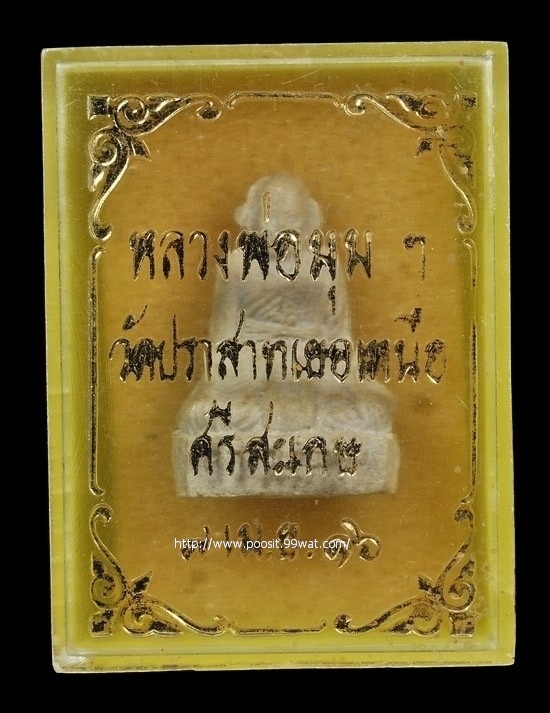 หลวงพ่อมุม ๅ
วัดปราสาทเยอเหนือ
ศรีสะเกษ
๗ เม.ย. ๑๖
http://www.poosit.99wat.com/